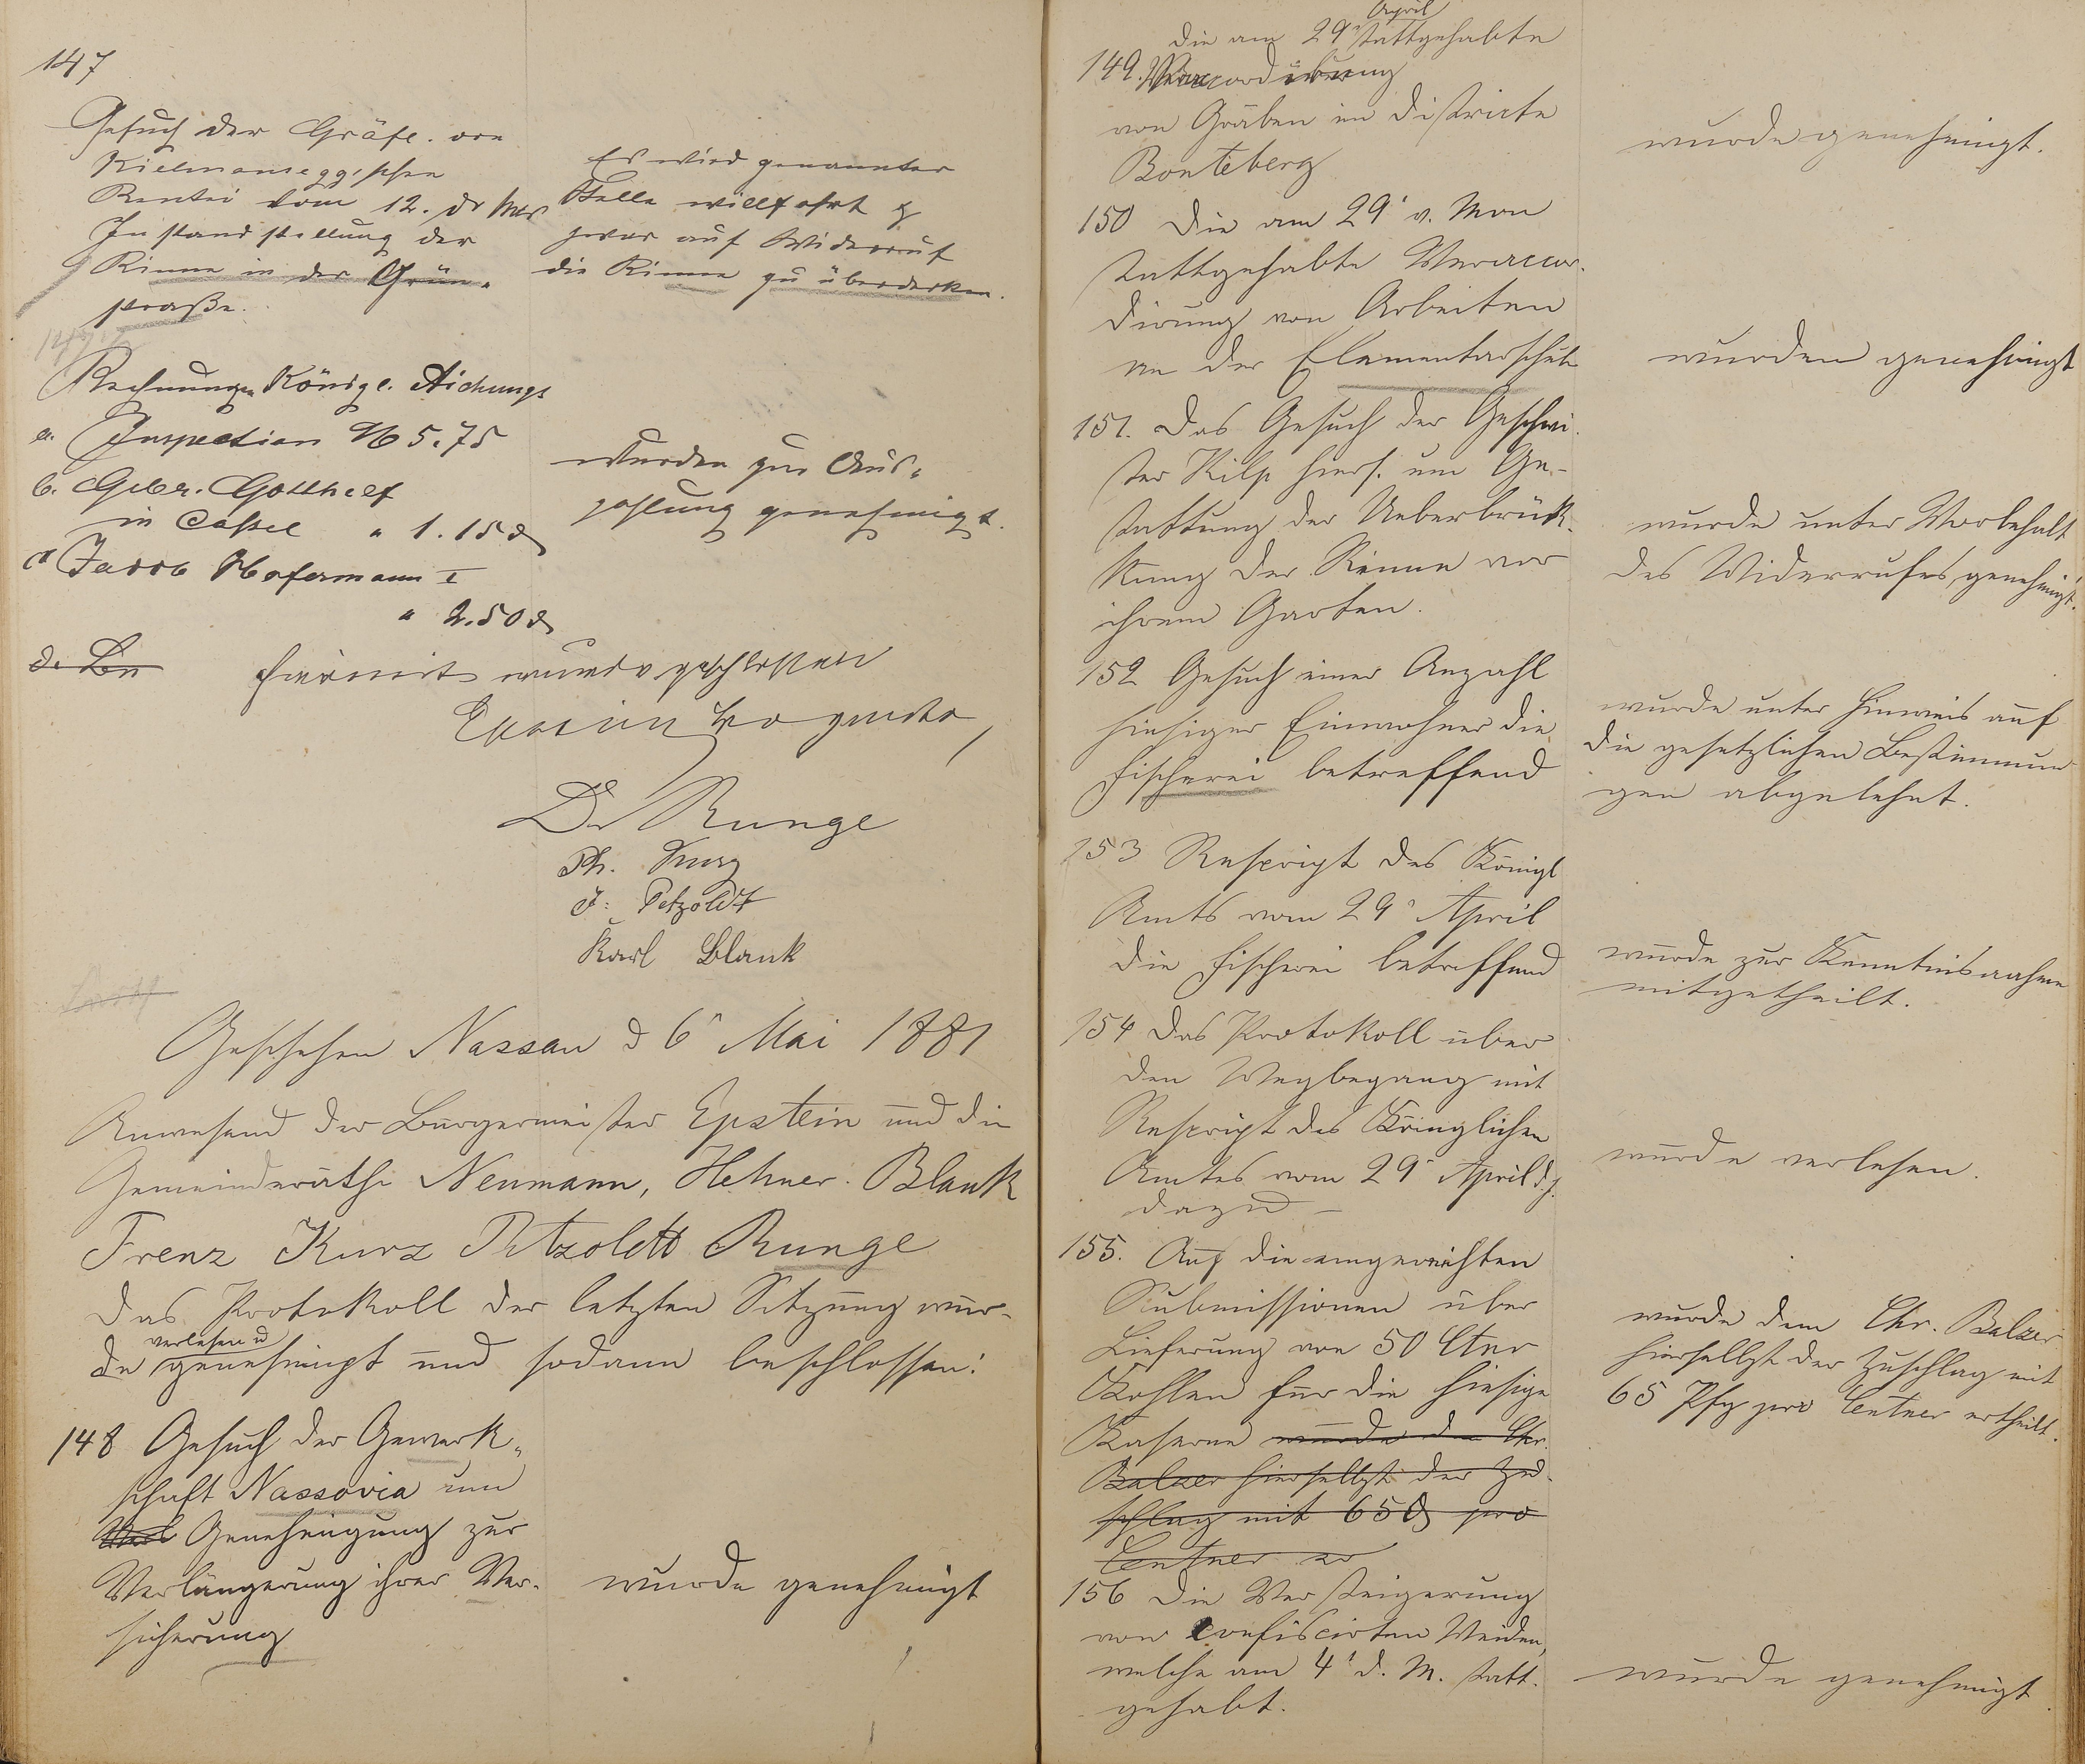 147
Gesuch der Gräfl. von
Kielmanseggischen
Rentei vom 12. ds Mts
Instandstellung der
Rinne in der Grün-
straße.
Es wird genannter
Stelle willfahrt &
zwar auf Widerruf
die Rinne zu überdecken.
Rechnungen Königl. Aichungs
a. Inspection M 5.75
b. Gebr. Gotthelf
in Cassel " 1.15 ₰
c Jacob Hofermann I
" 2.50 ₰
wurden zur Aus-
zahlung genehmigt.
d. Bu
Hiermit wurde geschlossen
Epstein Bürgermstr
Dr Runge
Ph. Kurz
J. Petzoldt
Karl Blank
Geschehen Nassau d 6n Mai 1881
Anwesend der Bürgermeister Epstein und die
Gemeinderäthe Neumann, Hehner. Blank
Frenz Kurz Petzoldt Runge
Das Protokoll der letzten Sitzung wur-
verlesen u
de genehmigt und sodann beschlossen:
148 Gesuch der Gewerk-
schaft Nassovia um
Genehmigung zur
Verlängerung ihrer Ver-
sicherung
wurde genehmigt
April
die am 29n stattgehabte
149. Veraccordirung
von Gräben im Districte
Bonteberg
wurde genehmigt.
150 Die am 29t v. Mon
stattgehabte Veraccor-
dirung von Arbeiten
an der Elementarschule
wurden genehmigt
151. Das Gesuch der Geschwi-
ster Kilp hiers. um Ge-
stattung der Ueberbrük-
kung der Rinne vor
ihrem Garten.
wurde unter Vorbehalt
des Widerrufes genehmigt.
152 Gesuch einer Anzahl
hiesiger Einwohner die
Fischerei betreffend
wurde unter Hinweis auf
die gesetzlichen Bestimmun-
gen abgelehnt.
153 Rescript des Königl
Amts vom 29n April
die Fischerei betreffend
wurde zur Kenntnisnahme
mitgetheilt.
154 Das Protokoll über
den Wegbegang mit
Rescript des Königlichen
Amtes vom 29n April d. J.
dazu –
wurde verlesen.
155. Auf die eingereichten
Submissionen über
Lieferung von 50 Ctnr
Kohlen für die hiesige
Kaserne wurde dem Chr.
Balzer hierselbst der Zu-
schlag mit 65 ₰ pro
Centner er
wurde dem Chr. Balzer
hierselbst der Zuschlag mit
65 Pfg pro Centner ertheilt.
156 Die Versteigerung
von confiscirten Weiden,
welche am 4t d. M. statt-
gehabt.
wurde genehmigt.